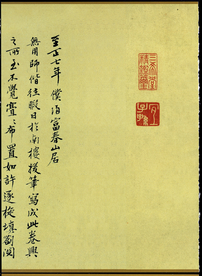 至正七年僕歸富春山居
無用師偕往暇日於南樓援筆寫成此卷興
之所至不覺亹亹布置如許逐旋填劄閱